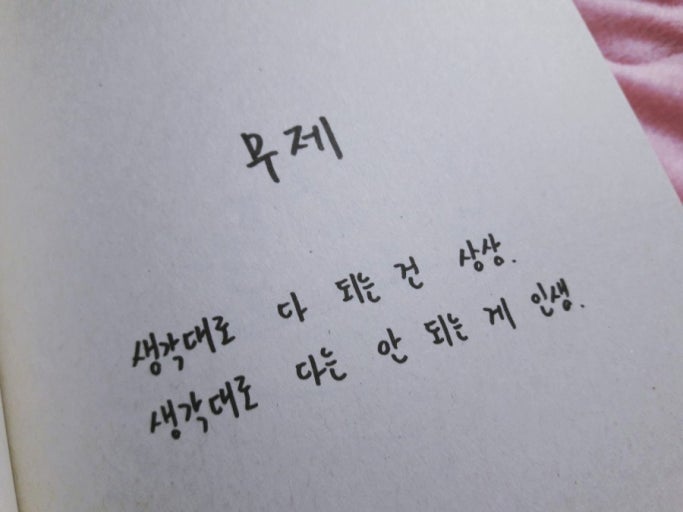 무제
생각대로 다 되는 건 상상.
생각대로 다는 안 되는 게 인생.